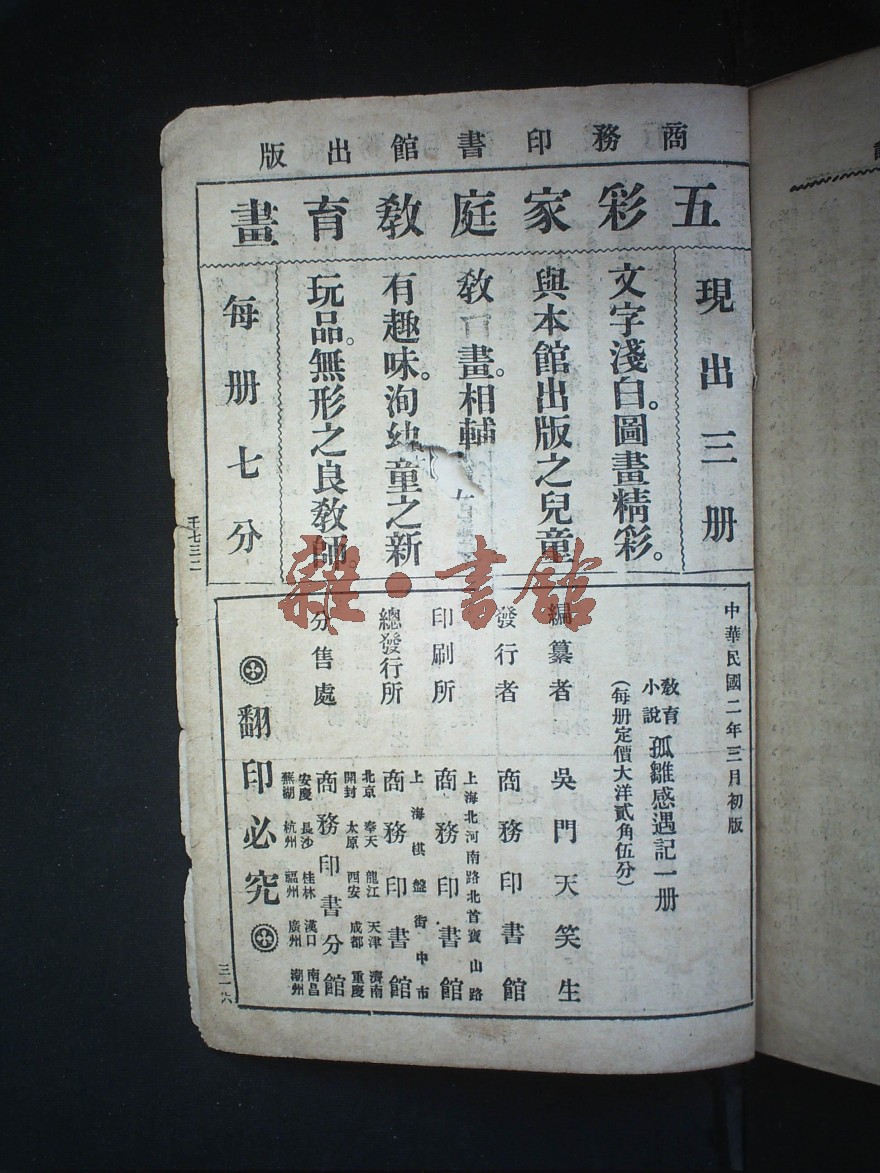 商務印書館出版
五彩家庭敎育畫
現出三册
文字淺白。圖畫精彩。
與本館出版之兒童
敎 畫。相輔
有趣味。洵幼童之新
玩品。無形之良敎師。
每册七分
中華民國二年三月初版
敎育小說 孤雛感遇記一册
(每册定價大洋貳角伍分)
編纂者 吳門天笑生
發行者 商務印書館
印刷所 上海北河南路北首寶山路 商務印書館
總發行所 上海棋盤街中市 商務印書館
分售處 北京 奉天 龍江 天津 濟南
開封 太原 西安 成都 重慶
商務印書分館
安慶 長沙 桂林 漢口 南昌
蕪湖 杭州 福州 廣州 潮州
翻印必究
雜·書館